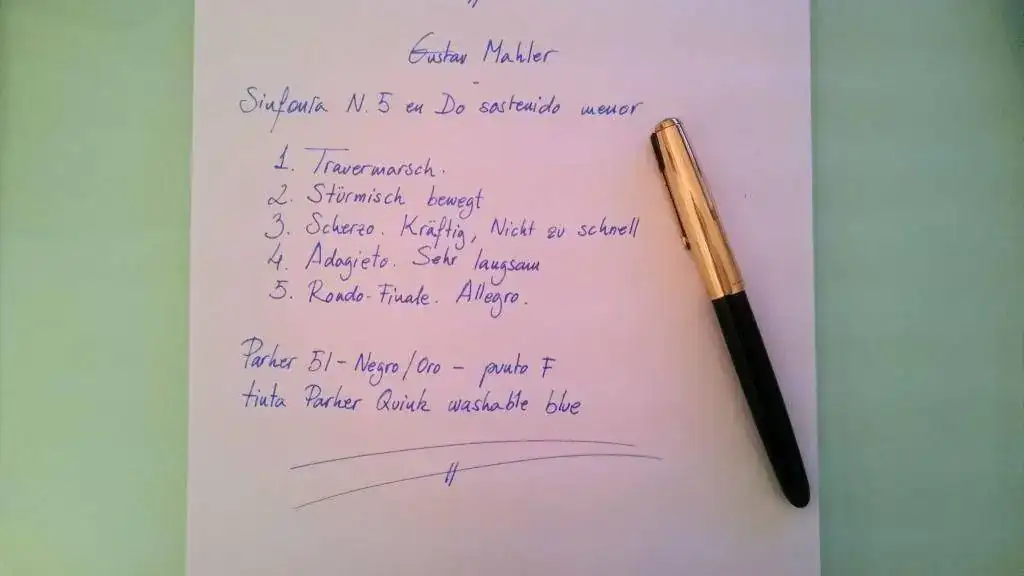 Gustav Mahler
-
Sinfonía N. 5 en Do sostenido menor
1. Travermarsch.
2. Stürmisch bewegt
3. Scherzo. Kräftig, Nicht zu schnell
4. Adagieto. Sehr langsam
5. Rondo-Finale. Allegro.
Parker 51 - Negro/Oro - punto F
tinta Parker Quink washable blue